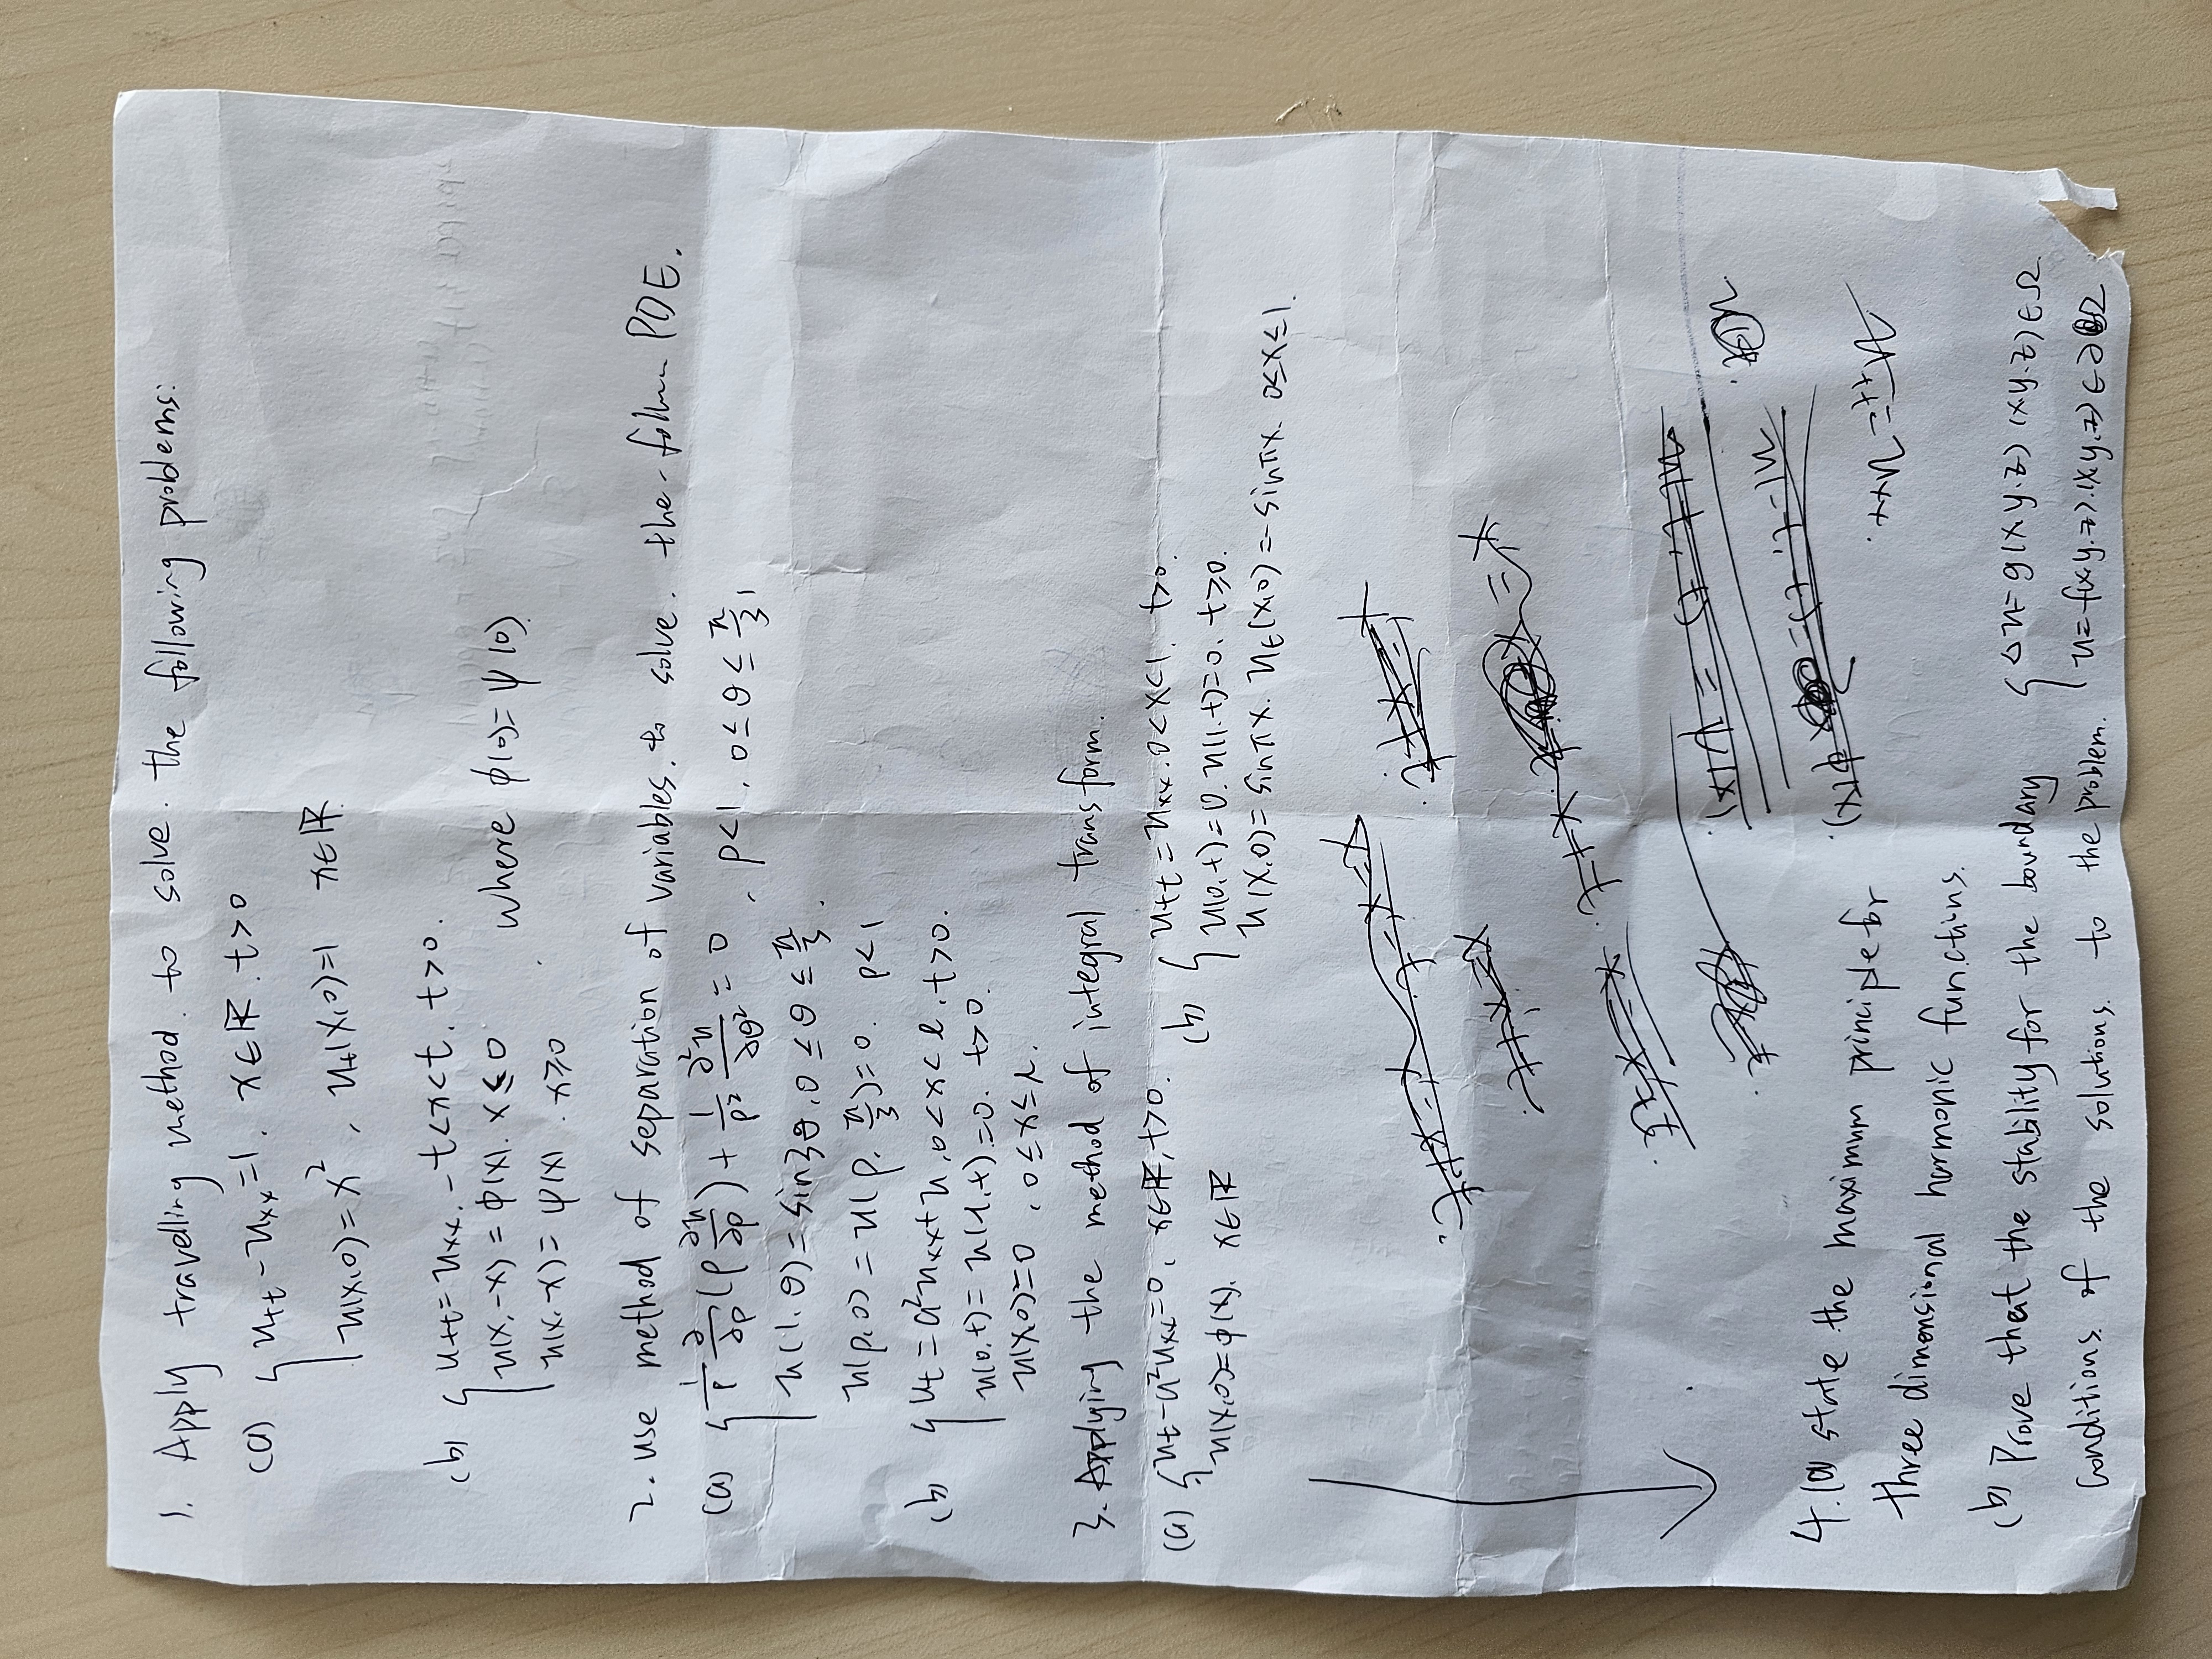 1. Apply travelling method. to solve. the following problems:
(a) { u_tt - u_xx = 1. x∈ℝ. t>0
u(x,0) = x², u_t(x,0)=1 x∈ℝ.
(b) { u_tt = u_xx. -t<x<t. t>0.
u(x,-x) = φ(x). x≤0 where φ(0)=ψ(0)
u(x,x) = ψ(x). x≥0
2. use method of separation of variables. to solve. the PDE.
(a) { 1/ρ ∂/∂ρ (ρ ∂u/∂ρ) + 1/ρ² ∂²u/∂θ² = 0, ρ<1, 0≤θ≤π/3,
u(1,θ) = sin3θ, 0≤θ≤π/3.
u(ρ,0) = u(ρ,π/3)=0. ρ<1
(b) { u_t = a²u_xx+u, 0<x<l, t>0.
u(0,t) = u(l,t)=0. t>0.
u(x,0)=0, 0≤x≤l.
3. Applying the method of integral transform.
(a) { u_t-a²u_xx=0, x∈ℝ, t>0.
u(x,0)=φ(x). x∈ℝ
(b) { u_tt = u_xx. 0<x<1. t>0.
u(0,t)=0. u(1,t)=0. t≥0.
u(x,0)=sinπx. u_t(x,0)=-sinπx. 0≤x≤1.
4. (a) state the maximum principle for
three dimensional harmonic functions.
(b) Prove that the stability for the boundary
conditions of the solutions to the problem.
{ Δu= g(x,y,z) (x,y,z)∈Ω.
u= f(x,y,z). (x,y,z)∈∂Ω
u_tt = u_xx.